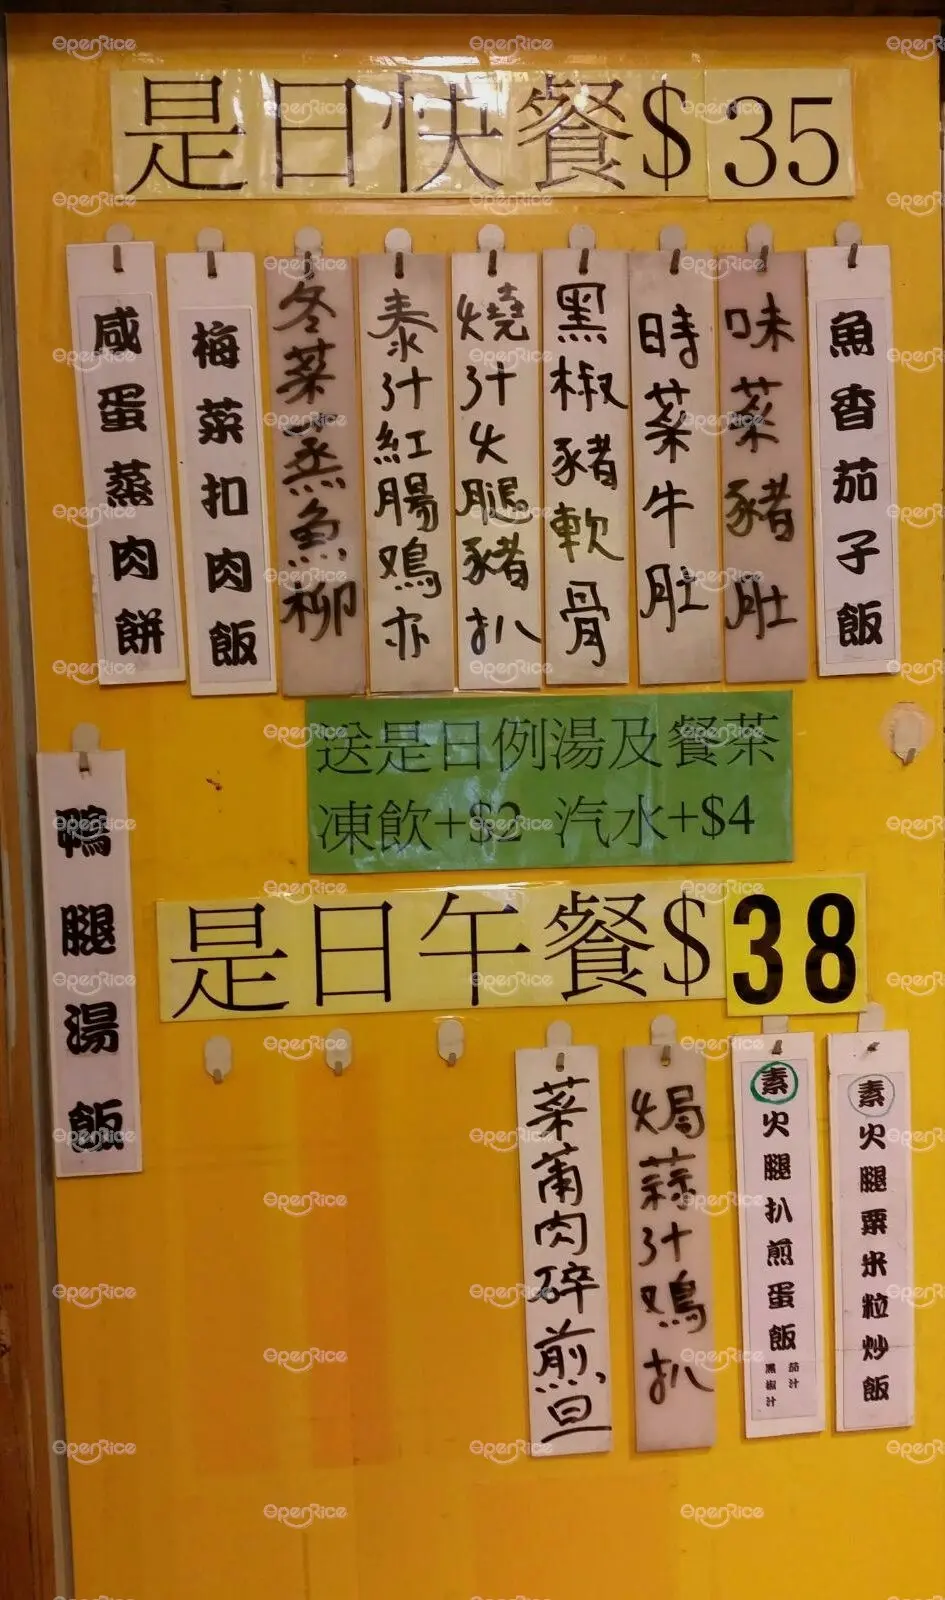 是日快餐$35
咸蛋蒸肉餅
梅菜扣肉飯
冬菜蒸魚柳
泰汁紅腸鸡亦
燒汁火腿豬扒
黑椒豬軟骨
時菜牛肚
味菜豬肚
魚香茄子飯
送是日例湯及餐茶
凍飲+$2 汽水+$4
鴨腿湯飯
是日午餐$38
菜甫肉碎煎旦
焗蒜汁鸡扒
素火腿扒煎蛋飯
茄汁
黑椒汁
素火腿粟米粒炒飯
OpenRice